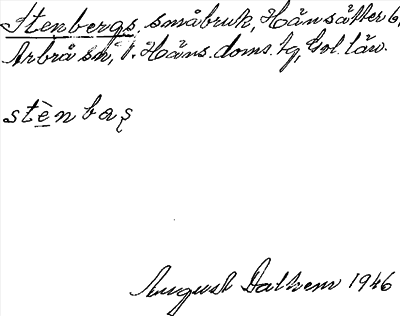 Stenbergs, småbruk, Hånsätter 6,
Arbrå sn, V. Häns. doms. tg, Gvl. län.
stènbaș
August Dalhem 1946